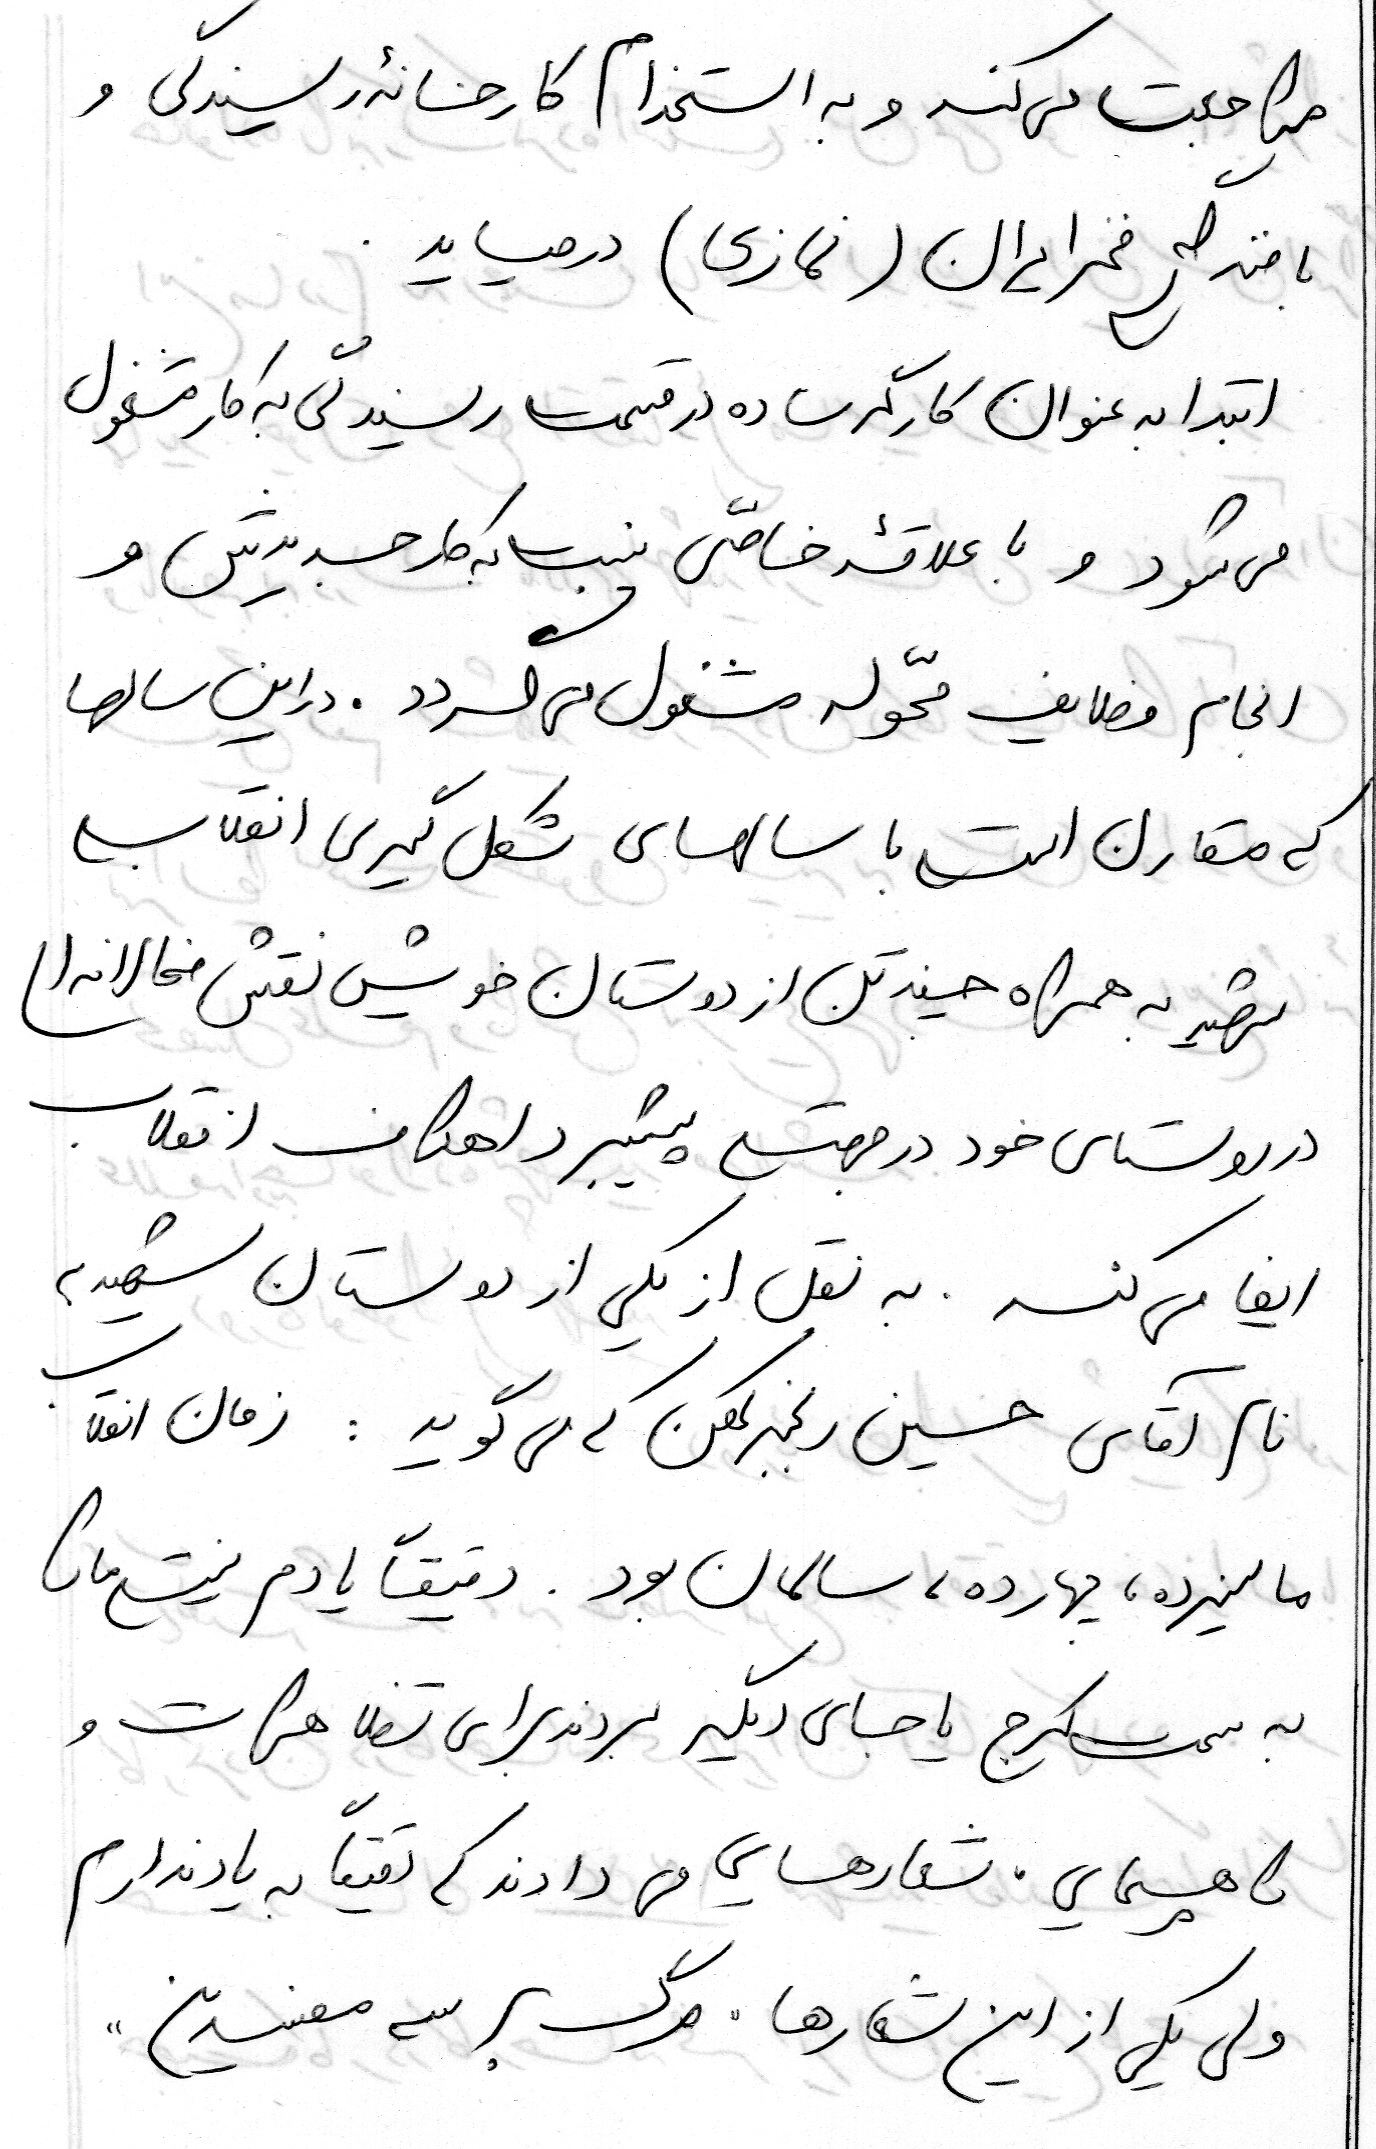 مراجعت می‌کند و به استخدام کارخانهٔ ریسندگی و
بافندگی فخر ایران (نمازی) درمیاید .
ابتدا به عنوان کارگر ساده در قسمت ریسندگی به کار مشغول
می‌شود و با علاقهٔ خاصّی نسبت به کار جدیدش و
انجام وظایف محّوله مشغول می‌گردد . در این سالها
که مقارن است با سالهای شکل گیری انقلاب
شهید به همراه چند تن از دوستان خویش نقش فعالانه‌ای
در روستای خود در جهت پیشبرد اهداف انقلاب
ایفا می‌کند . به نقل از یکی از دوستان شهید به
نام آقای حسین که می‌گوید : زمان انقلاب
ما سیزده ، چهارده ، سالمان بود . دقیقاً یادم نیست ما را
به سمت کرج یا جای دیگر بردند برای تظاهرات و
راهپیمایی . شعارهایی می دادند که دقیقاً به یاد ندارم
ولی یکی از این شعارها " مرگ بر سه مفسدین "